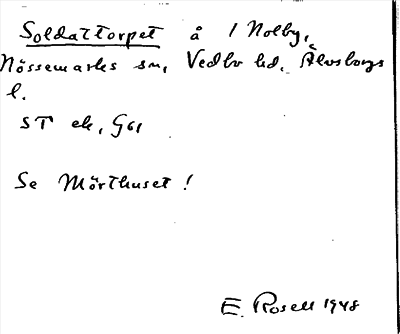 Soldattorpet å 1 Nolby,
Nössemarks sn, Vedbo hd, Älvsborgs
l.
ST ek, G61
Se Mörthuset!
E. Rosell 1948